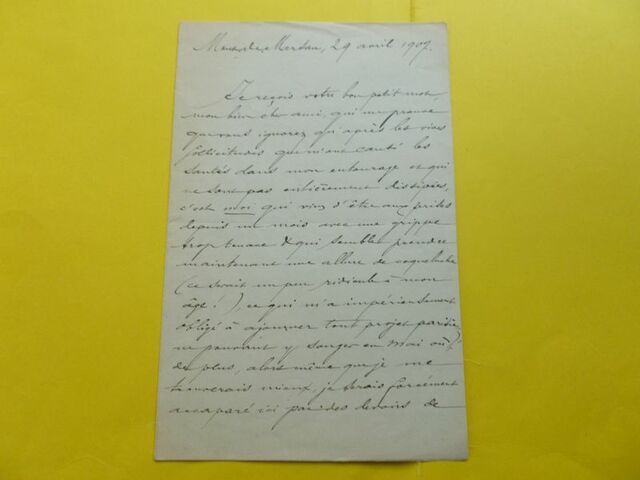 Mont-de-Marsan, 29 avril 1907.
Je reçois votre bon petit mot,
mon bien cher ami, qui me prouve
que vous ignorez qu'après les vives
sollicitudes que m'ont causé les
santés dans mon entourage et qui
ne sont pas entièrement dissipées,
c'est moi qui viens d'être aux prises
depuis un mois avec une grippe
trop tenace & qui semble prendre
maintenant une allure de coqueluche
(ce serait un peu ridicule à mon
âge!), ce qui m'a impérieusement
obligé à ajourner tout projet
ne pouvant y songer en Mai où
de plus, alors même que je me
trouverais mieux, je serais forcément
accaparé ici par des devoirs de